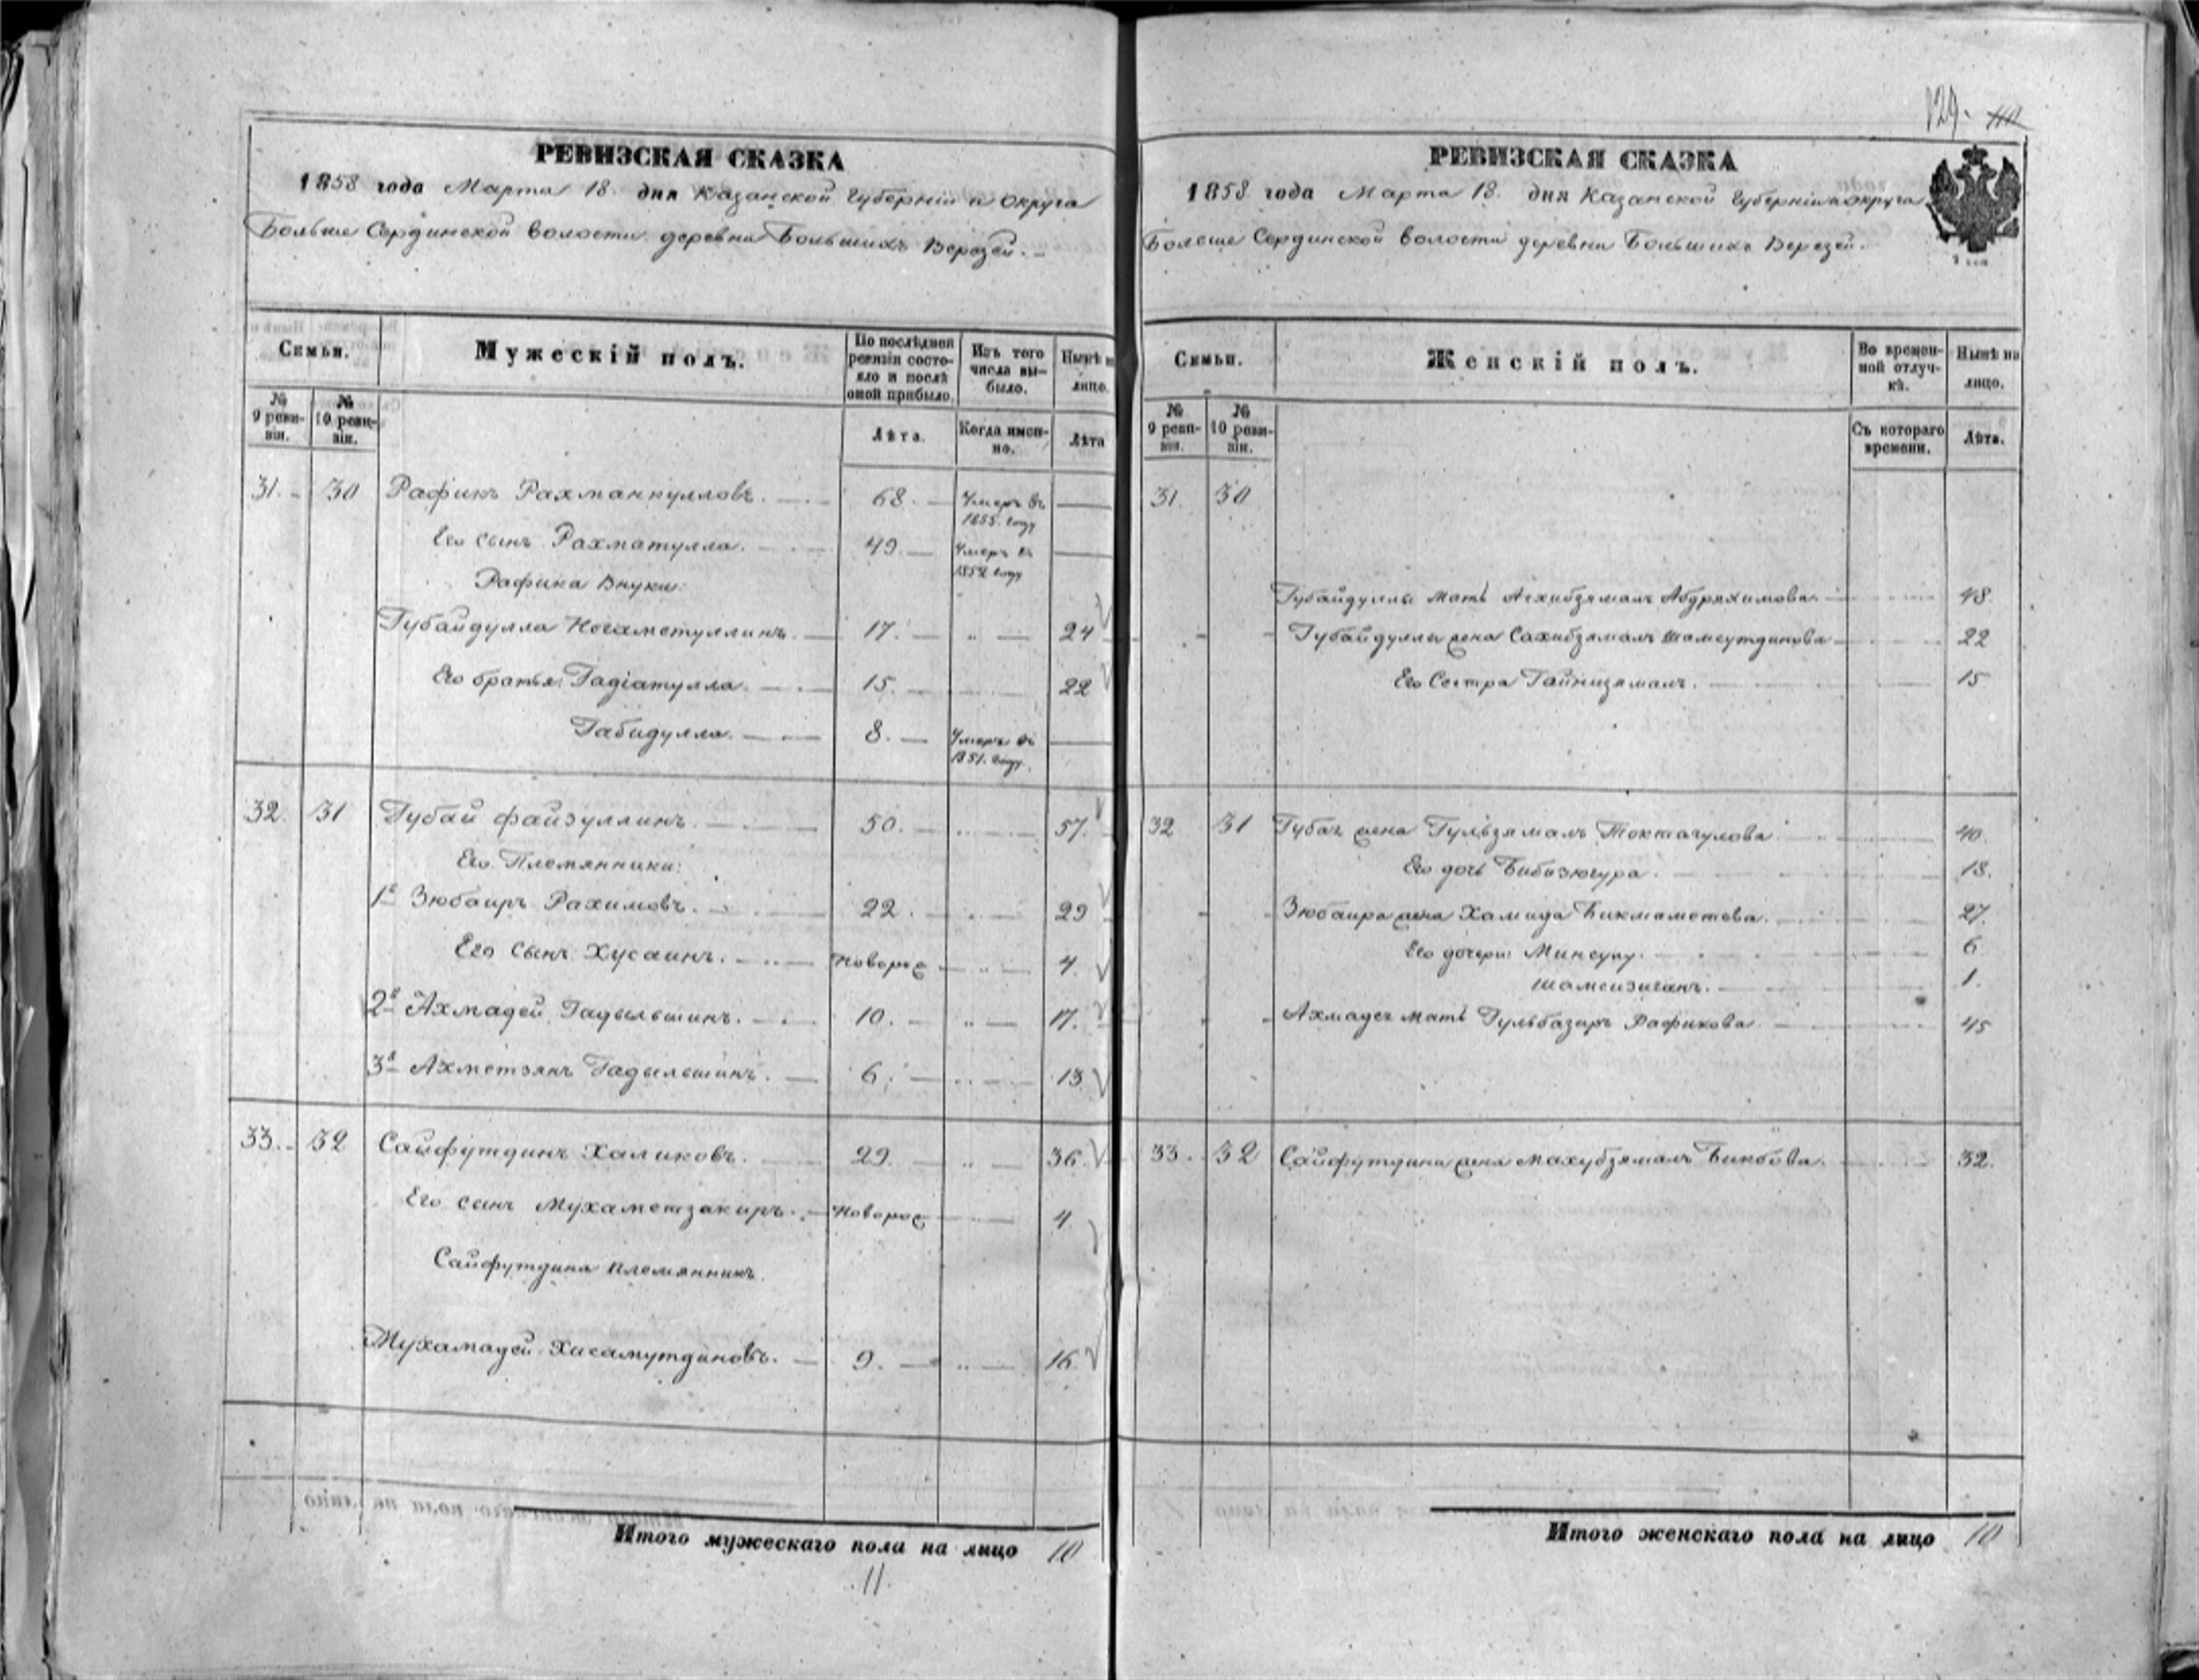 129.
РЕВИЗСКАЯ СКАЗКА
1858 года Марта 18. дня Казанской Губерніи и Округа
Больше Сердинской волости деревни Большихъ Верезей. -
Семьи.
Мужескій полъ.
По послѣдней ревизіи состояло и послѣ оной прибыло.
Изъ того числа выбыло.
Нынѣ на лицо.
№ 9 ревизіи.
№ 10 ревизіи.
Лѣта.
Когда именно.
Лѣта
31. 30 Рафикъ Рахманкулловъ. 68. Умеръ въ 1855. году
Его сынъ Рахматулла. 49. Умеръ въ 1852 году
Рафика Внуки:
Губайдулла Негаметуллинъ. 17. 24
Его братья: Гадіатулла. 15. 22
Габидулла. 8. Умеръ въ 1851. году.
32. 31 Губай Файзуллинъ. 50. 57.
Его Племянники:
1й Зюбаиръ Рахимовъ. 22. 29
Его сынъ Хусаинъ. новорож 4.
2й Ахмадей Гадыльшинъ. 10. 17.
3й Ахметзянъ Гадыльшинъ. 6. 13
33. 32 Сайфутдинъ Халиковъ. 29. 36.
Его сынъ Мухаметзакиръ. новорож 4.
Сайфутдина племянникъ
Мухамадей Хисамутдиновъ. 9. 16.
Итого мужескаго пола на лицо 10
11.
РЕВИЗСКАЯ СКАЗКА
1858 года Марта 18. дня Казанской Губерніи и округа
Больше Сердинской волости деревни Большихъ Верезей.
Семьи.
Женскій полъ.
Во временной отлучкѣ.
Нынѣ на лицо.
№ 9 ревизіи.
№ 10 ревизіи.
Съ котораго времени.
Лѣта.
31. 30
Губайдуллы мать Абдряхимова. 48.
Губайдуллы жена Сахибзямалъ Шамсутдинова 22
Его Сестра Гайнизямалъ. 15
32 31 Губая жена Гульзямалъ Токтагулова 40.
Его дочь Бибизюгура. 18.
Зюбаира жена Хамида Бикмаметева. 27.
Его дочери: Минсулу. 6
Шамсизиганъ. 1.
Ахмадея мать Гульбазиръ Рафикова. 45
33. 32 Сайфутдина жена Махубзямалъ Бикбова. 32.
Итого женскаго пола на лицо 10